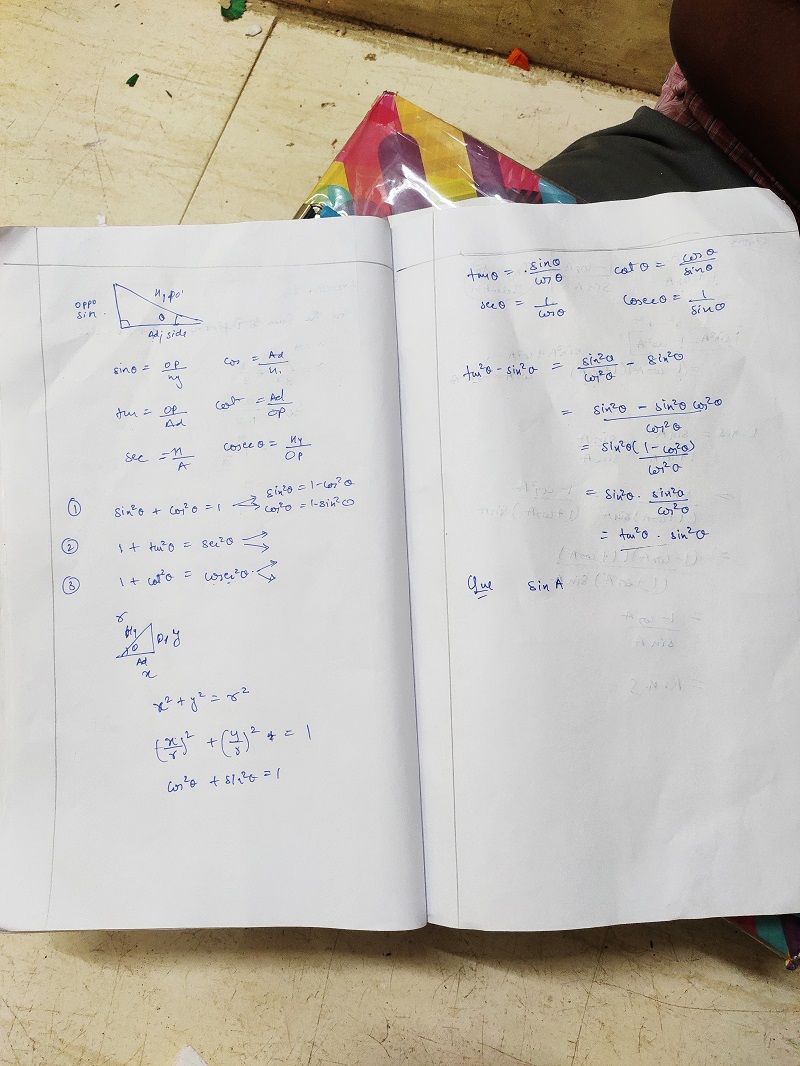 Hypo'
Oppo
sin
θ
Adj side
sinθ = OP/Hy cos = Ad/H
tan = OP/Ad cot = Ad/OP
sec = H/A cosecθ = Hy/OP
① sin²θ + cos²θ = 1 sin²θ = 1-cos²θ
cos²θ = 1-sin²θ
② 1 + tan²θ = sec²θ
③ 1 + cot²θ = cosec²θ
r
Hy
θ
OP y
Ad
x
x² + y² = r²
(x/r)² + (y/r)² = 1
cos²θ + sin²θ = 1
tanθ = sinθ/cosθ cotθ = cosθ/sinθ
secθ = 1/cosθ cosecθ = 1/sinθ
tan²θ - sin²θ = sin²θ/cos²θ - sin²θ
= sin²θ - sin²θ cos²θ/cos²θ
= sin²θ(1-cos²θ)/cos²θ
= sin²θ . sin²θ/cos²θ
= tan²θ . sin²θ
Que sin A